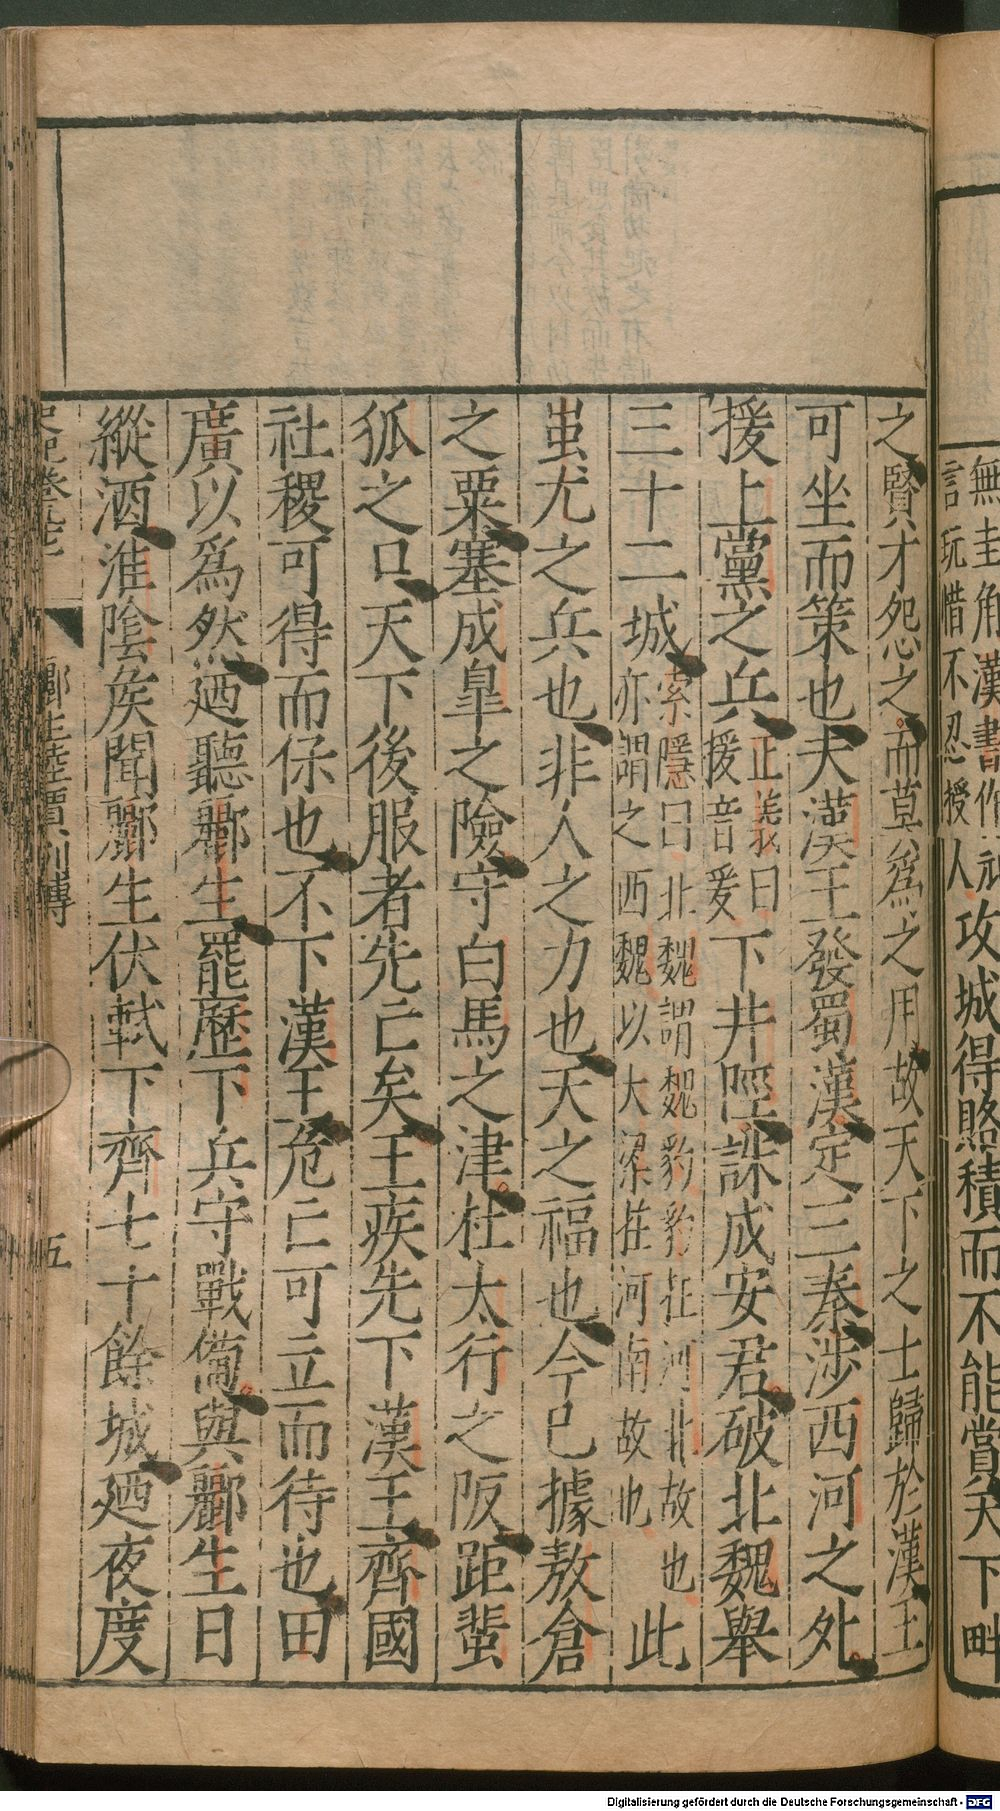 無圭角漢書作
言玩惜不忍授
人攻城得賂積而不能賞天下畔
之賢才怨之而莫爲之用故天下之士歸於漢王
可坐而策也夫漢王發蜀漢定三秦涉西河之外
援上黨之兵正義曰援音爰下井陘誅成安君破北魏舉
三十二城索隱曰北魏謂魏豹豹在河北故也亦謂之西魏以大梁在河南故也此
蚩尤之兵也非人之力也天之福也今已據敖倉
之粟塞成臯之險守白馬之津杜太行之阪距蜚
狐之口天下後服者先亡矣王疾先下漢王齊國
社稷可得而保也不下漢王危亡可立而待也田
廣以爲然廼聽酈生罷歷下兵守戰備與酈生日
縱酒淮陰侯聞酈生伏軾下齊七十餘城廼夜度
酈生陸賈列傳
五
Digitalisierung gefördert durch die Deutsche Forschungsgemeinschaft - DFG